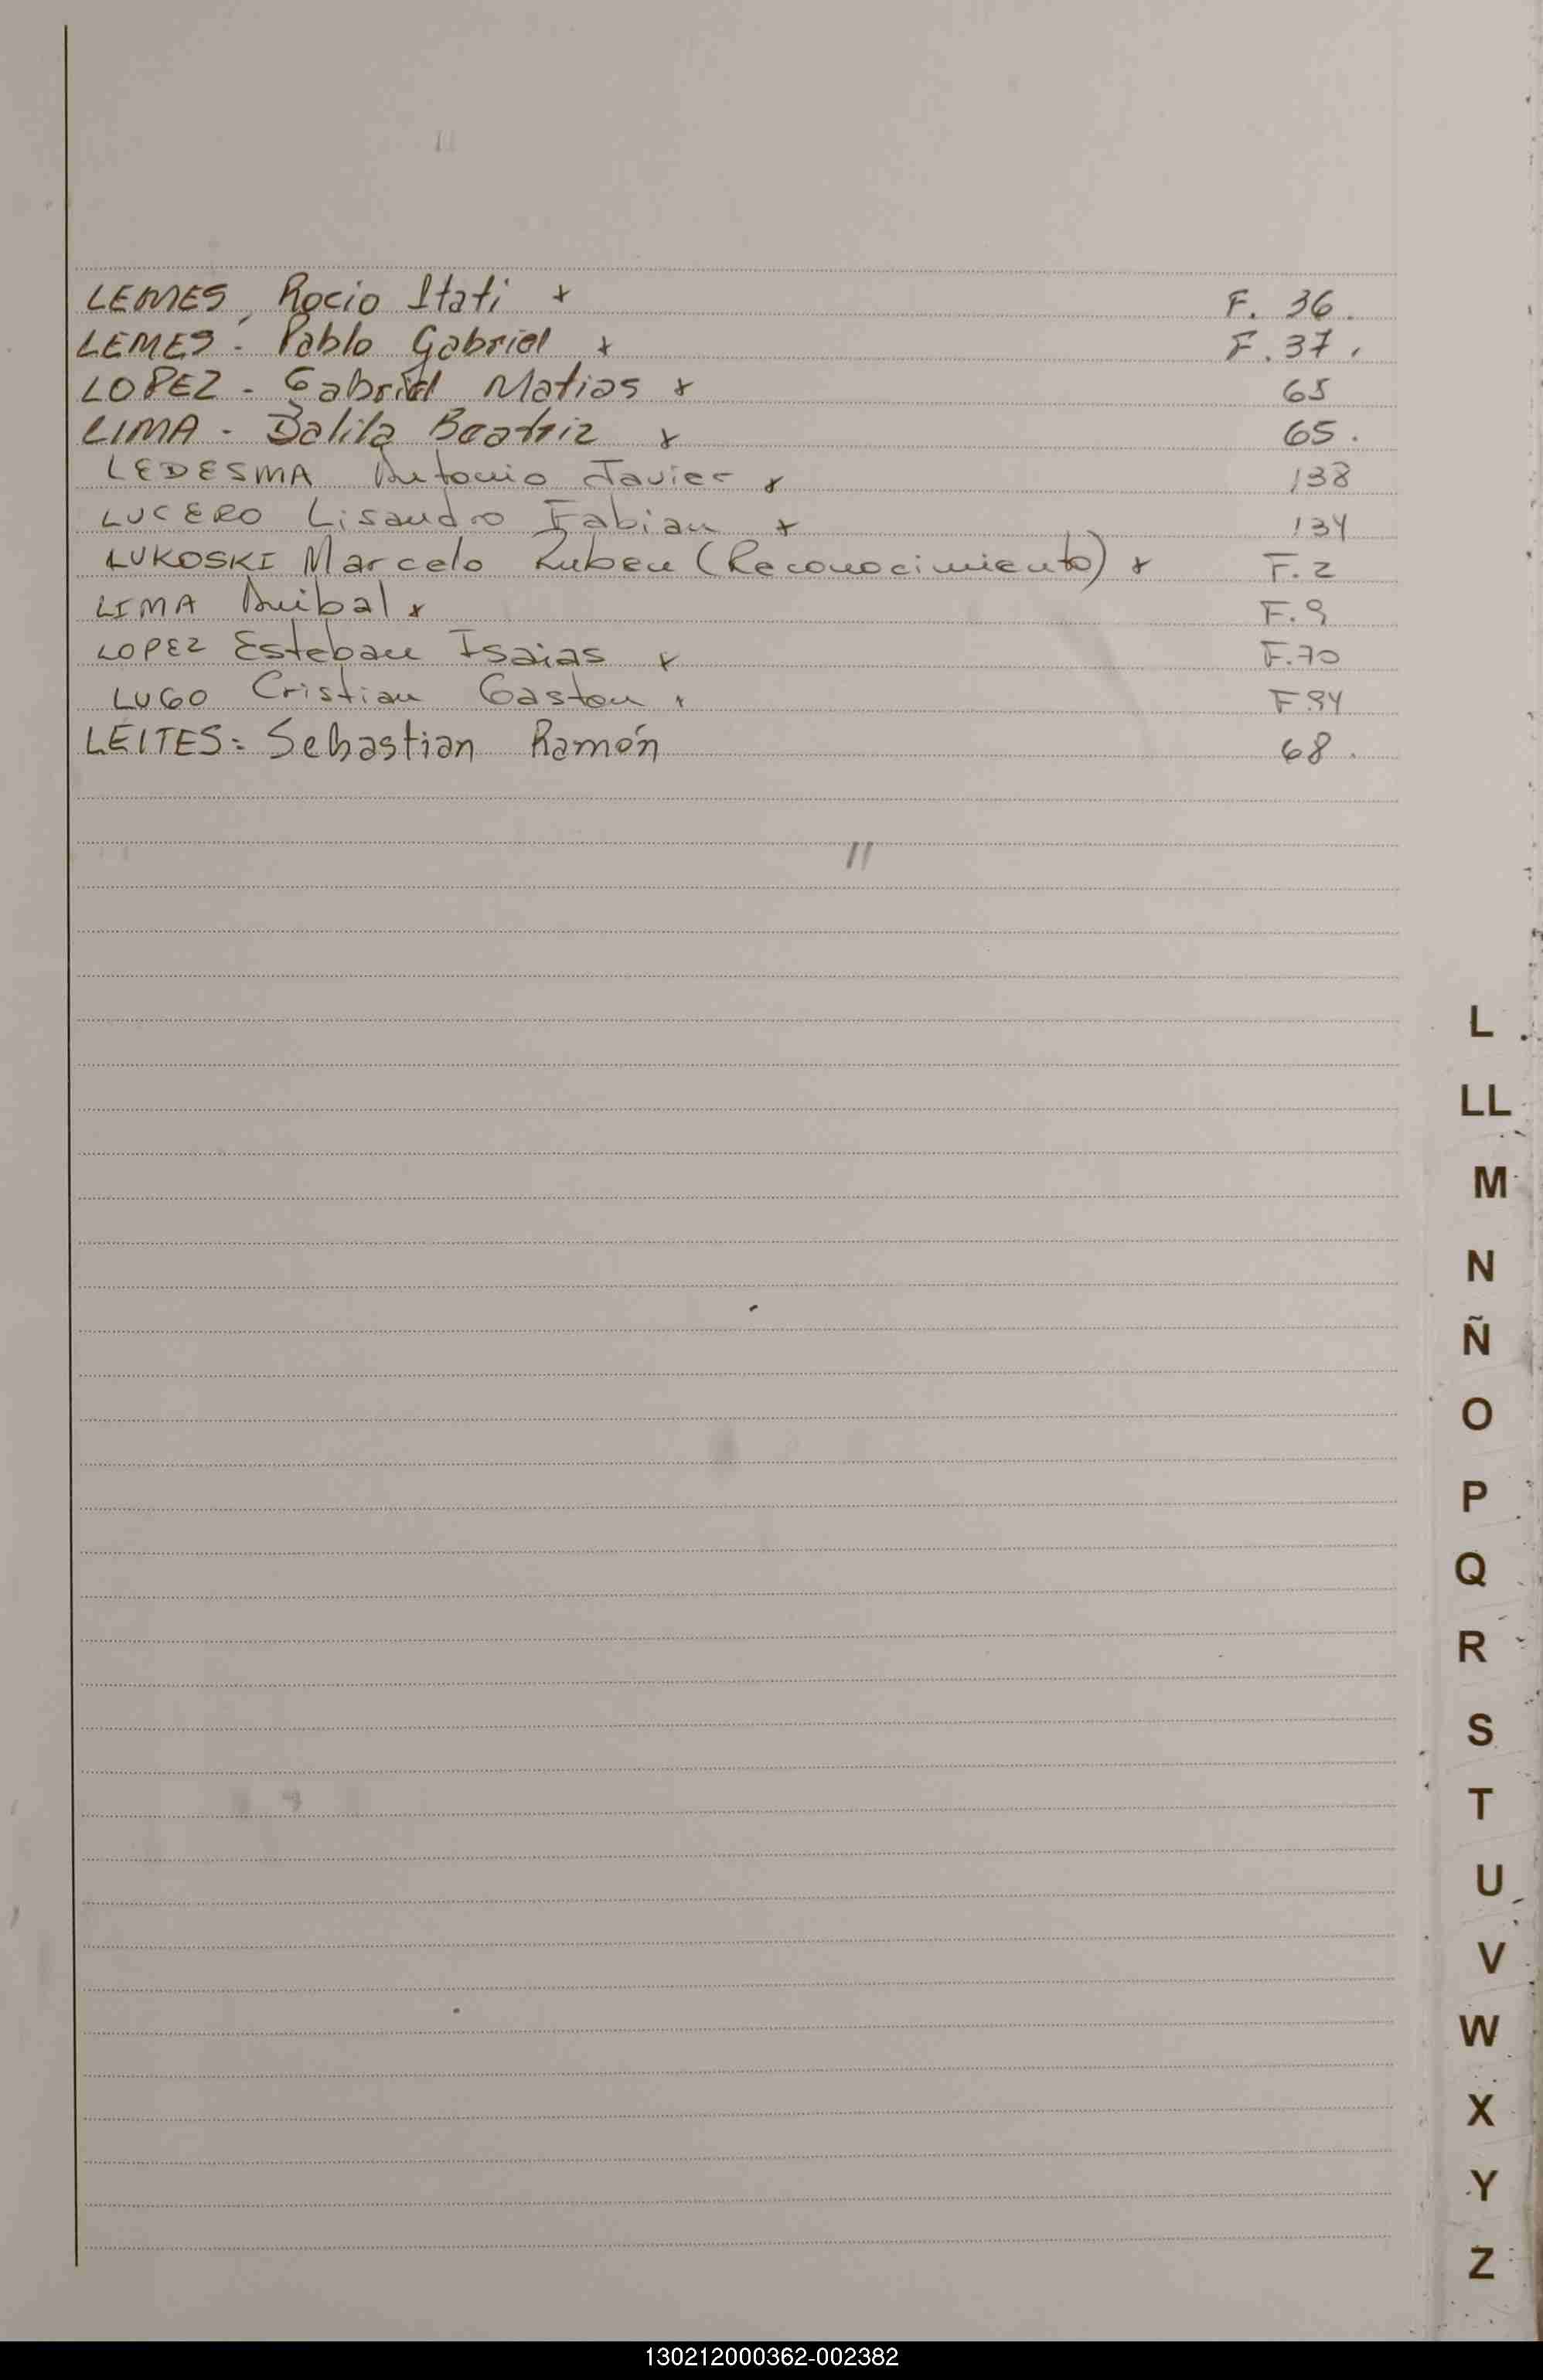 LEMES, Rocio Itati x F. 36.
LEMES - Pablo Gabriel x F. 37.
LOPEZ - Gabriel Matias x 65
LIMA - Dalila Beatriz x 65.
LEDESMA Antonio Javier x 138
LUCERO Lisandro Fabian x 134
LUKOSKI Marcelo Ruben (Reconocimiento) x F. 2
LIMA Anibal x F. 9
LOPEZ Esteban Isaias x F. 70
LUGO Cristian Gaston x F. 94
LEITES = Sebastian Ramón 68.
L
LL
M
N
Ñ
O
P
Q
R
S
T
U
V
W
X
Y
Z
130212000362-002382